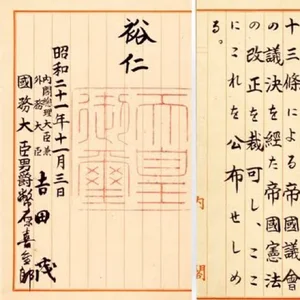 十三條による帝國議會
の議決を経た帝國憲法
の改正を裁可し、ここ
にこれを公布せしめ
る。
内閣
裕仁
天皇
御璽
昭和二十一年十一月三日
内閣總理大臣兼
外務大臣
吉田茂
國務大臣男爵幣原喜重郎